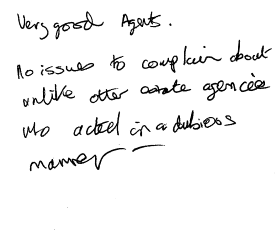 Very good Agents.
No issues to complain about
unlike other estate agencies
who acted in a dubious
manner